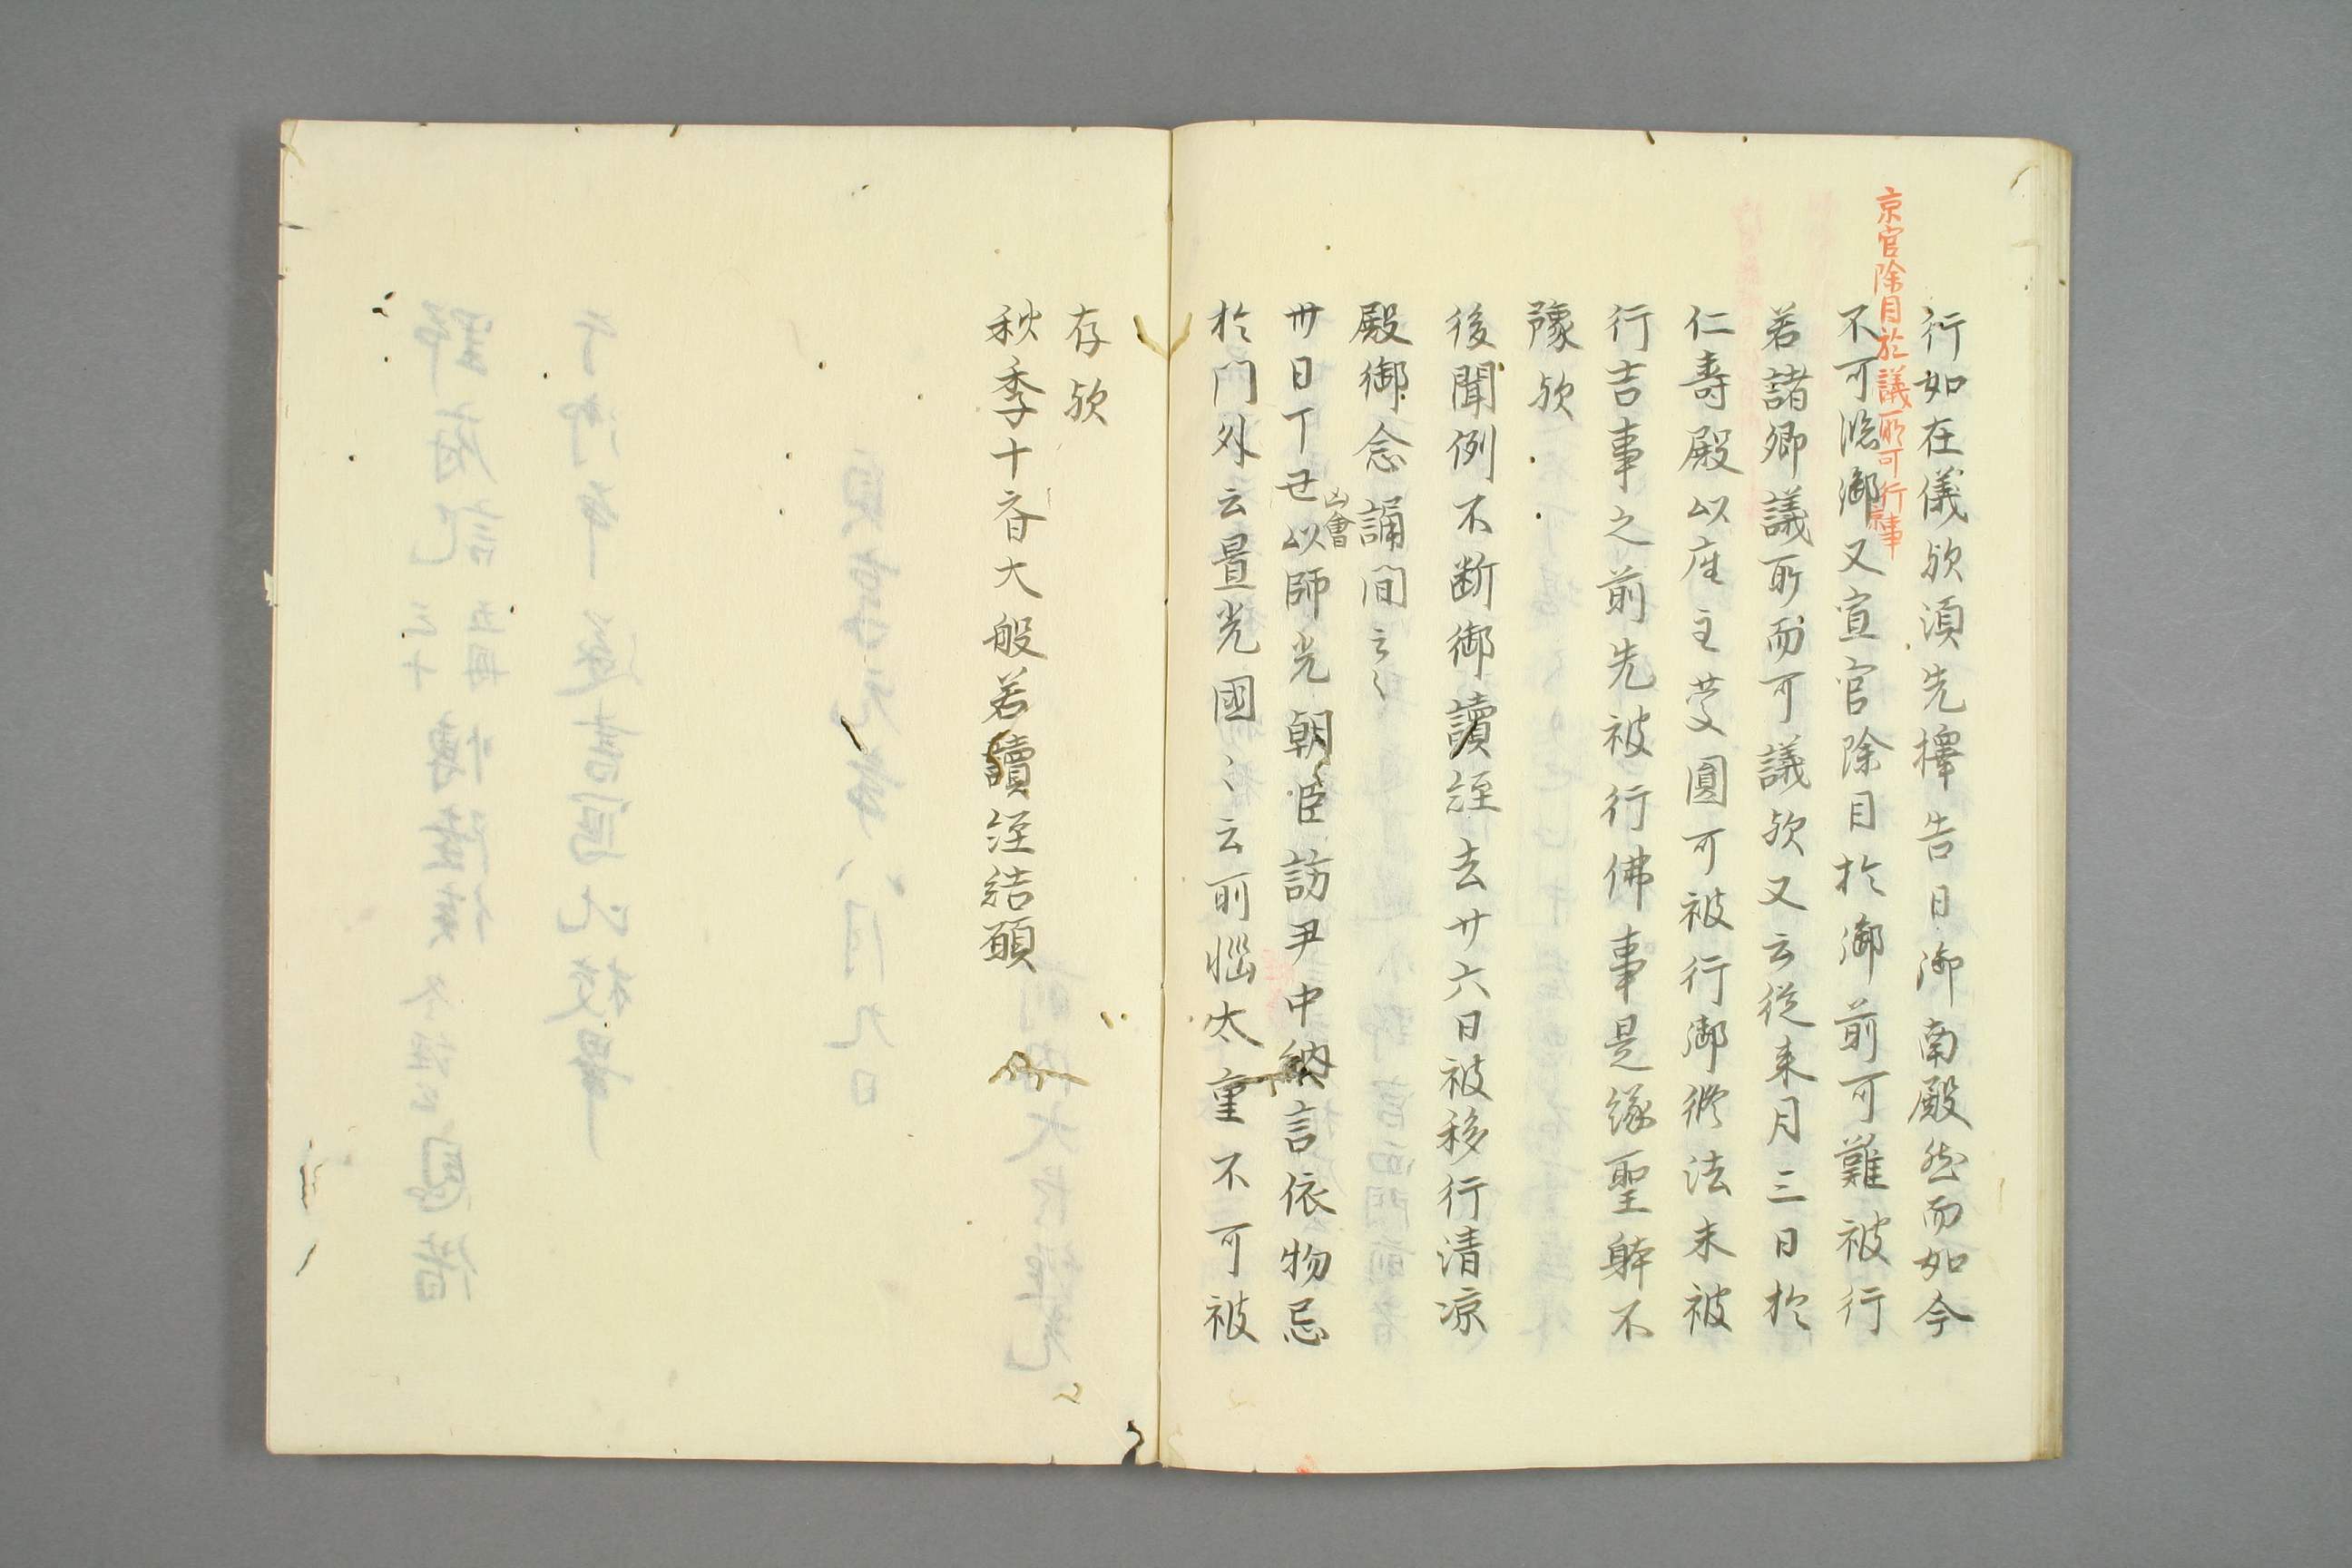 京官除目於議所可行事
行如在儀欤須先擇吉日御南殿然而如今
不可臨御又宣官除目於御前可難被行
若諸卿議所而可議欤又云従来月三日於
仁壽殿以座主慶圓可被行御修法未被
行吉事之前先被行佛事是縁聖躰不
豫欤
後聞例不断御讀経去廿六日被移行清凉
殿御念誦間云々
卅日丁丑以師光朝臣訪尹中納言依物忌
凶會
於門外云畳光國〻云前悩太重不可被
存欤
秋季十斎大般若讀経結願